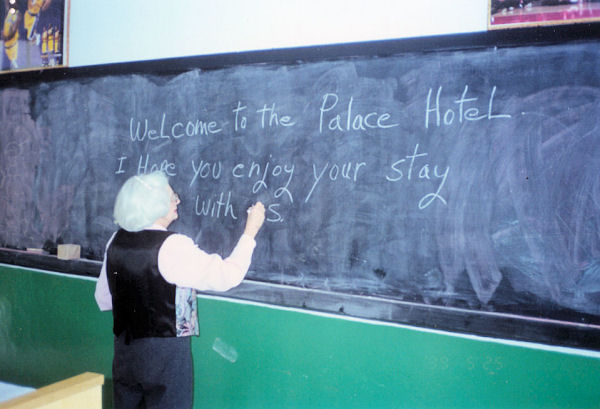 Welcome to the Palace Hotel
I Hope you enjoy your stay
with us.
99 5 25